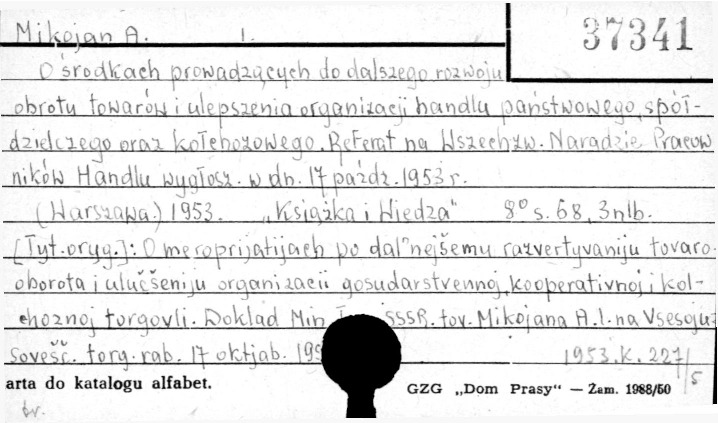 Mikojan A. I.
37341
O środkach prowadzących do dalszego rozwoju
obrotu towarów i ulepszenia organizacji handlu państwowego, spół-
dzielczego oraz kołchozowego. Referat na Wszechzw. Naradzie Pracow
ników Handlu wygłosz. w dn. 17 paźdz. 1953 r.
(Warszawa.) 1953. „Książka i Wiedza" 8° s. 68, 3 nlb.
[Tyt. oryg.]: O meroprijatijach po dal'nejšemu razvertyvaniju tovaro-
oborota i ulučšeniju organizacii gosudarstvennoj, kooperativnoj i kol-
choznoj torgovli. Doklad Min SSSR. tov. Mikojana A. I. na Vsesojuz
sovešč. torg. rab. 17 oktjab. 195
1953.K.227/5
arta do katalogu alfabet.
GZG „Dom Prasy“ — Zam. 1988/50